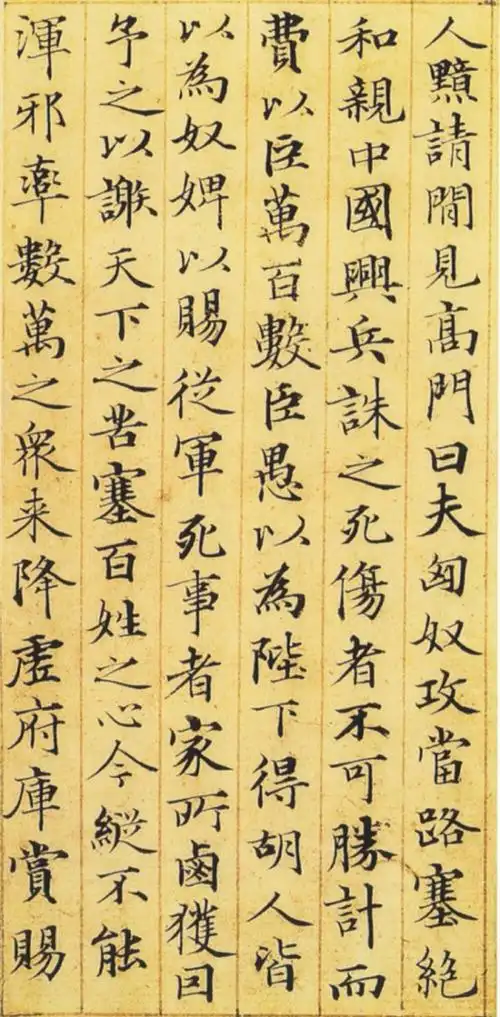 人黯請間見高門曰夫匈奴攻當路塞絶
和親中國興兵誅之死傷者不可勝計而
費以臣萬百數臣愚以為陛下得胡人皆
以為奴婢以賜從軍死事者家所鹵獲囙
予之以謝天下之苦塞百姓之心今縱不能
渾邪率數萬之衆来降虛府庫賞賜